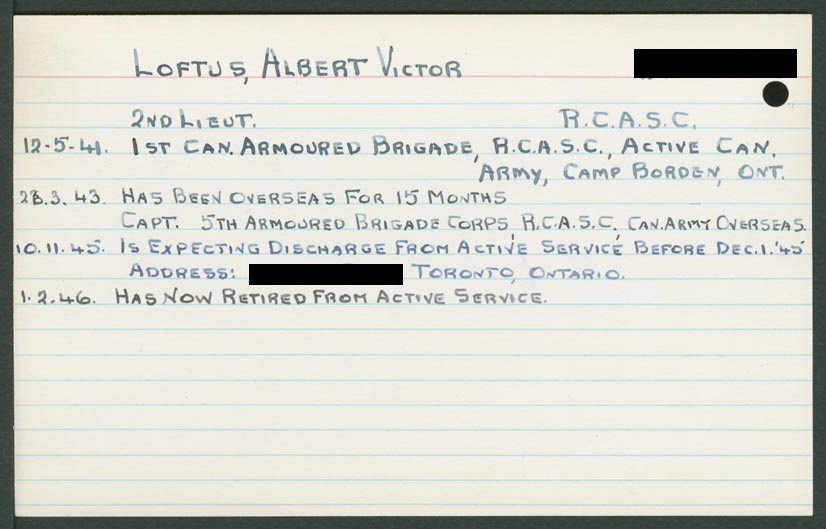 LOFTUS, ALBERT VICTOR
2ND LIEUT. R.C.A.S.C.
12-5-41. 1ST CAN. ARMOURED BRIGADE, R.C.A.S.C., ACTIVE CAN.
ARMY, CAMP BORDEN, ONT.
28.3.43. HAS BEEN OVERSEAS FOR 15 MONTHS
CAPT. 5TH ARMOURED BRIGADE CORPS, R.C.A.S.C, CAN. ARMY OVERSEAS.
10.11.45. IS EXPECTING DISCHARGE FROM ACTIVE SERVICE BEFORE DEC.1.'45
ADDRESS: TORONTO, ONTARIO.
1.2.46. HAS NOW RETIRED FROM ACTIVE SERVICE.